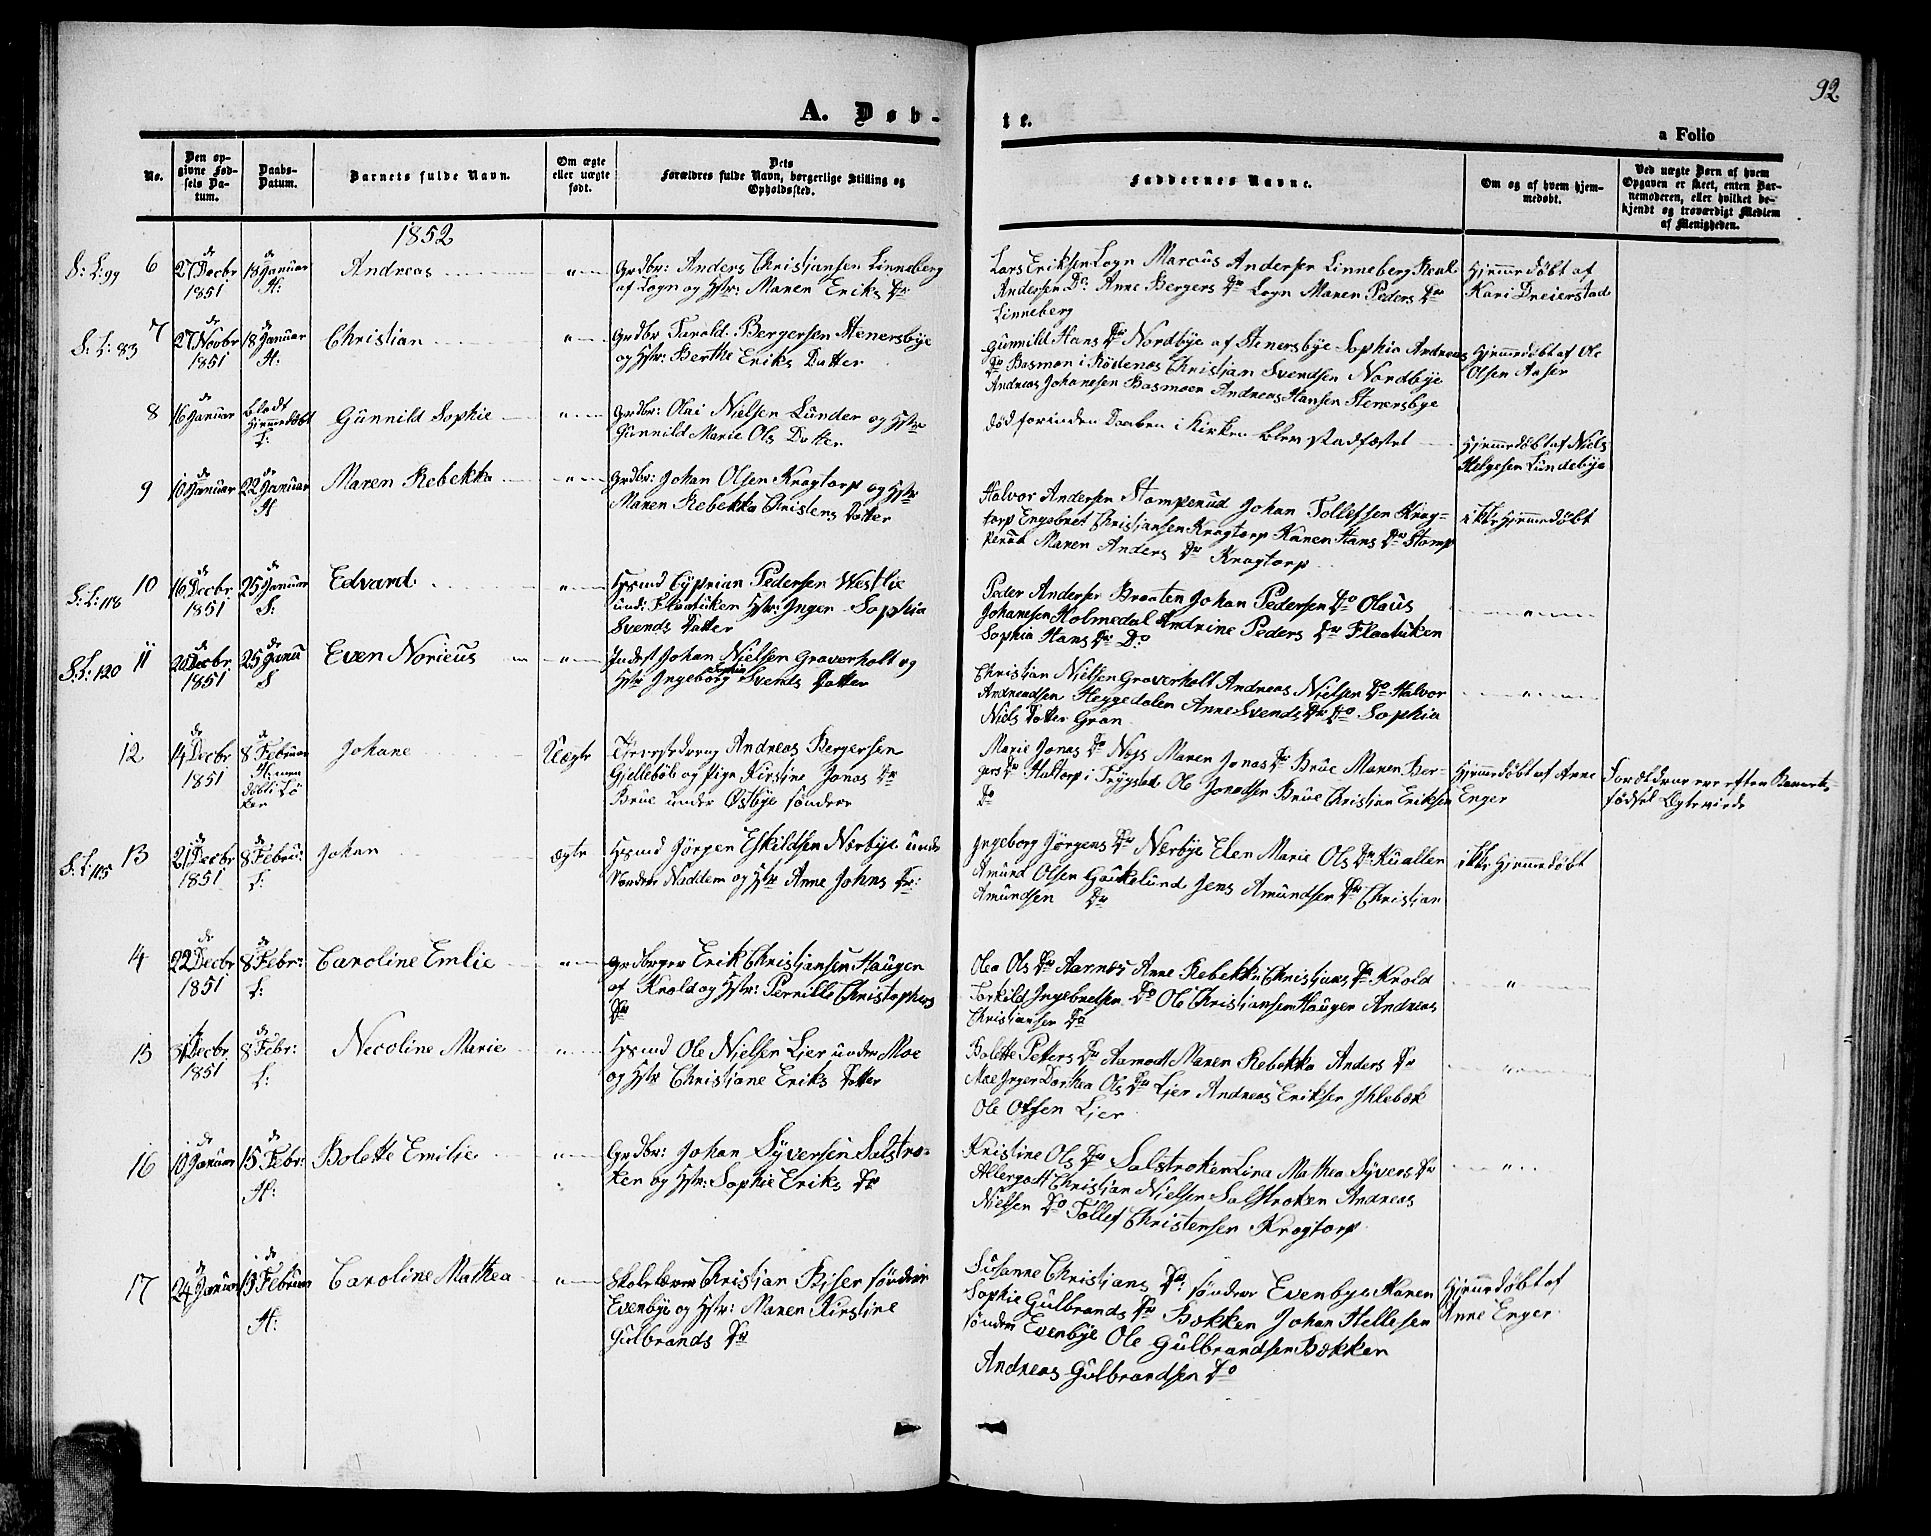 92
A. Døb-
te.
a Folio
No.
Den op-
givne Fød-
sels Da-
tum.
Daabs-
Datum.
Barnets fulde Navn.
Om ægte
eller uægte
født.
Dets
Forældres fulde Navn, borgerlige Stilling og
Opholdssted.
Faddernes Navne.
Om og af hvem hjem-
medøbt.
Ved uægte Børn af hvem
Opgaven er skeet, enten Bar-
nemoderen, eller hvilket be-
kjendt og troværdigt Medlem
af Menigheden.
1852
S: L: 99
6
27 Decbr
1851
18 Januar
H:
Andreas
Grdbr: Anders Christjansen Linneberg
af Sogn og Hstr: Maren Eriks Dr
Lars Eriksen Sogn Marcus Andersen Linneberg
Andersen Do: Anne Bergers Dr Sogn Maren Peders Dr
Linneberg
Hjemmedøbt af
Kari Dreierstad
S: L: 83
7
27 Novbr
1851
18 Januar
H:
Christian
Grdbr Tarald Bergersen Stenersbye
og Hstr: Berthe Eriks Datter
Gunnild Hans Dr Nordbye af Stenersbye Sophia Andreas
Dr Basmon i Rødenes Christjan Svendsen Nordbye
Andreas Johanesen Basmoen Andreas Hansen Stenersbye
Hjemmedøbt af Ole
Olsen Aaser
8
16 Januar
blodt
Hjemmedøbt
Gunnild Sophie
Grdbr: Olai Nielsen Lunder og Hstr
Gunnild Marie Ols Datter
død forinden Daaben i Kirken blev stadfæstet
Hjemmedøbt af Niels
Helgesen Lundebye
9
10 Januar
22 Januar
H
Maren Rebekka
Grdbr: Johan Olsen Kragtorp og Hstr
Maren Rebekka Christens Datter
Halvor Andersen Stomperud Johan Tollefsen Krag-
torp Engebret Christjansen Kragtorp Karen Hans Dr Stomp
perud Maren Anders Dr Kragtorp
ikke Hjemmedøbt
S: L: 118
10
16 Decbr
1851
25 Januar
S:
Edvard
Hsmd Cyprian Pedersen Westlie
und: Flaatuken Hstr: Inger Sophia
Svends Datter
Peder Andersen Braaten Johan Pedersen Do Olaus
Johanesen Holmedal Andrine Peders Dr Flaatuken
Sophia Hans Dr Do
S: L: 120
11
20 Decbr
1851
25 Janu
S
Even Noricus
Inderst Johan Nielsen Graverholt og
Hstr Ingeborg Sophie Svends Datter
Christian Nielsen Graverholt Andreas Nielsen Do Halvor
Andreadsen Heggedalen Anne Svends Dr Do Sophia
Niels Datter Gran
12
14 Decbr
1851
8 Februar
Johane
Uægte
Tjenestedreng Andreas Bergersen
Gjellebøl og Pige Kirstine Jonas Dr
Brue under Østbye søndre
Marie Jonas Dr Næs Maren Jonas Dr Brue Maren Ber-
gers Dr Haltorp i Trygstad Ole Jonasen Brue Christian Eriksen
Do
Hjemmedøbt af Anne
Enger
Forældrene er efter Barnets
fødsel Ægteviede
S: L: 115
13
21 Decbr
1851
8 Febru:
L:
Johan
ægte
Hsmd Jørgen Eskildsen Nærbye und:
Nordre Naddem og Hstr Anne Johns Dr:
Ingeborg Jørgens Dr Nærbye Elen Marie Ols Dr Kuallen
Amund Olsen Goukelund Jens Amundsen Do Christjan
Amundsen Do
ikke Hjemmedøbt
14
22 Decbr
1851
8 Febr:
L:
Caroline Emlie
Grdbrger Erik Christjansen Haugen
af Krold og Hstr: Pernille Christophers
Dr
Olea Ols Dr Aarnes Anne Rebekka Christjans Dr Krold
Torkild Ingebretsen Do Ole Christjansen Haugen Andreas
Christjansen Do
15
31 Decbr
1851
8 Febr:
L:
Necoline Marie
Hsmd Ole Nielsen Lier under Moe
og Hstr Christjane Eriks Datter
Bolette Petters Dr Aamodt Maren Rebekka Anders Dr
Moe Inger Dorthea Ols Dr Lier Andreas Eriksen Ihlebæk
Ole Olsen Lier
16
10 Januar
15 Febr:
H:
Bolette Emilie
Grdbr: Johan Syversen Salstro-
ken og Hstr: Sophie Eriks Dr
Kristine Ols Dr Salstroken Lina Mathea Syvers Dr
Allergodt Christjan Nielsen Salstroken Andreas
Nielsen Do Tollef Christensen Kragtorp
17
24 Januar
15 Februar
H:
Caroline Mathea
Skolelærer Christjan Riser søndre
Evenbye og Hstr: Maren Kirstine
Gulbrands Dr
Susanne Christjans Dr: søndre Evenbye Karen
Sophie Gulbrands Dr Bækken Johan Hellesen
søndre Evenbye Ole Gulbrandsen Bækken
Andreas Gulbrandsen Do
Hjemmedøbt af
Anne Enger